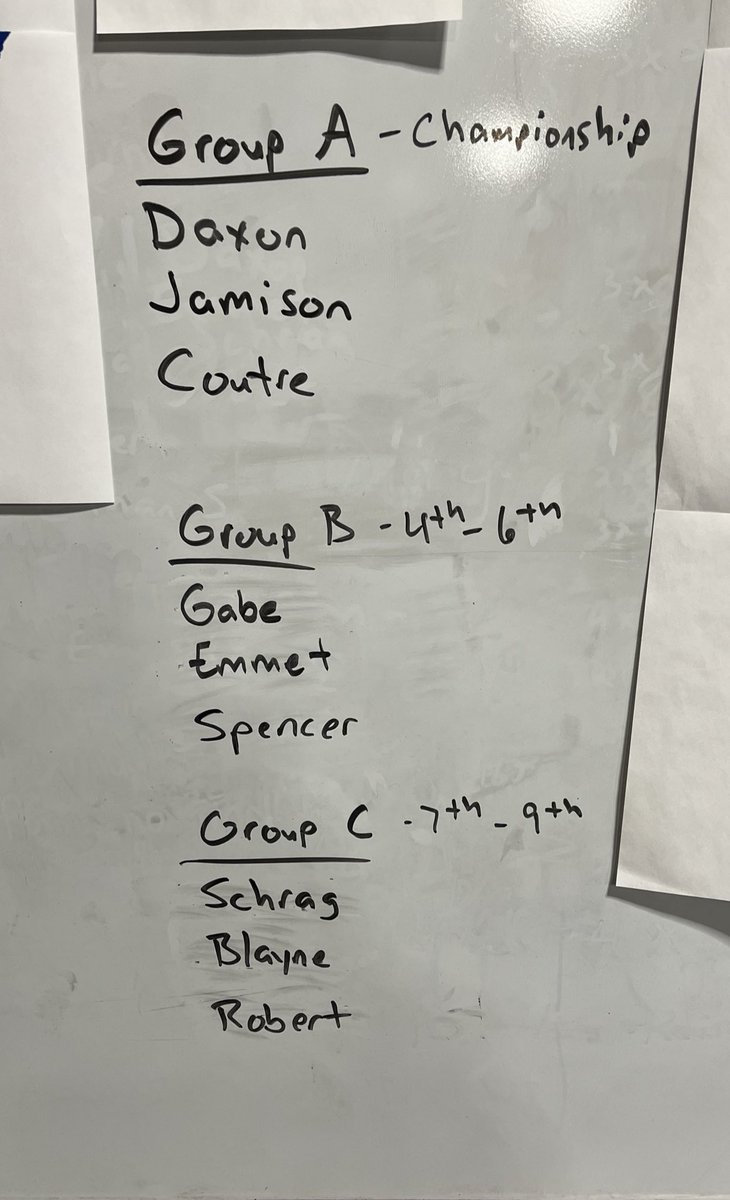 Group A - Championship
Daxon
Jamison
Coutre
Group B - 4th - 6th
Gabe
Emmet
Spencer
Group C - 7th - 9th
Schrag
Blayne
Robert